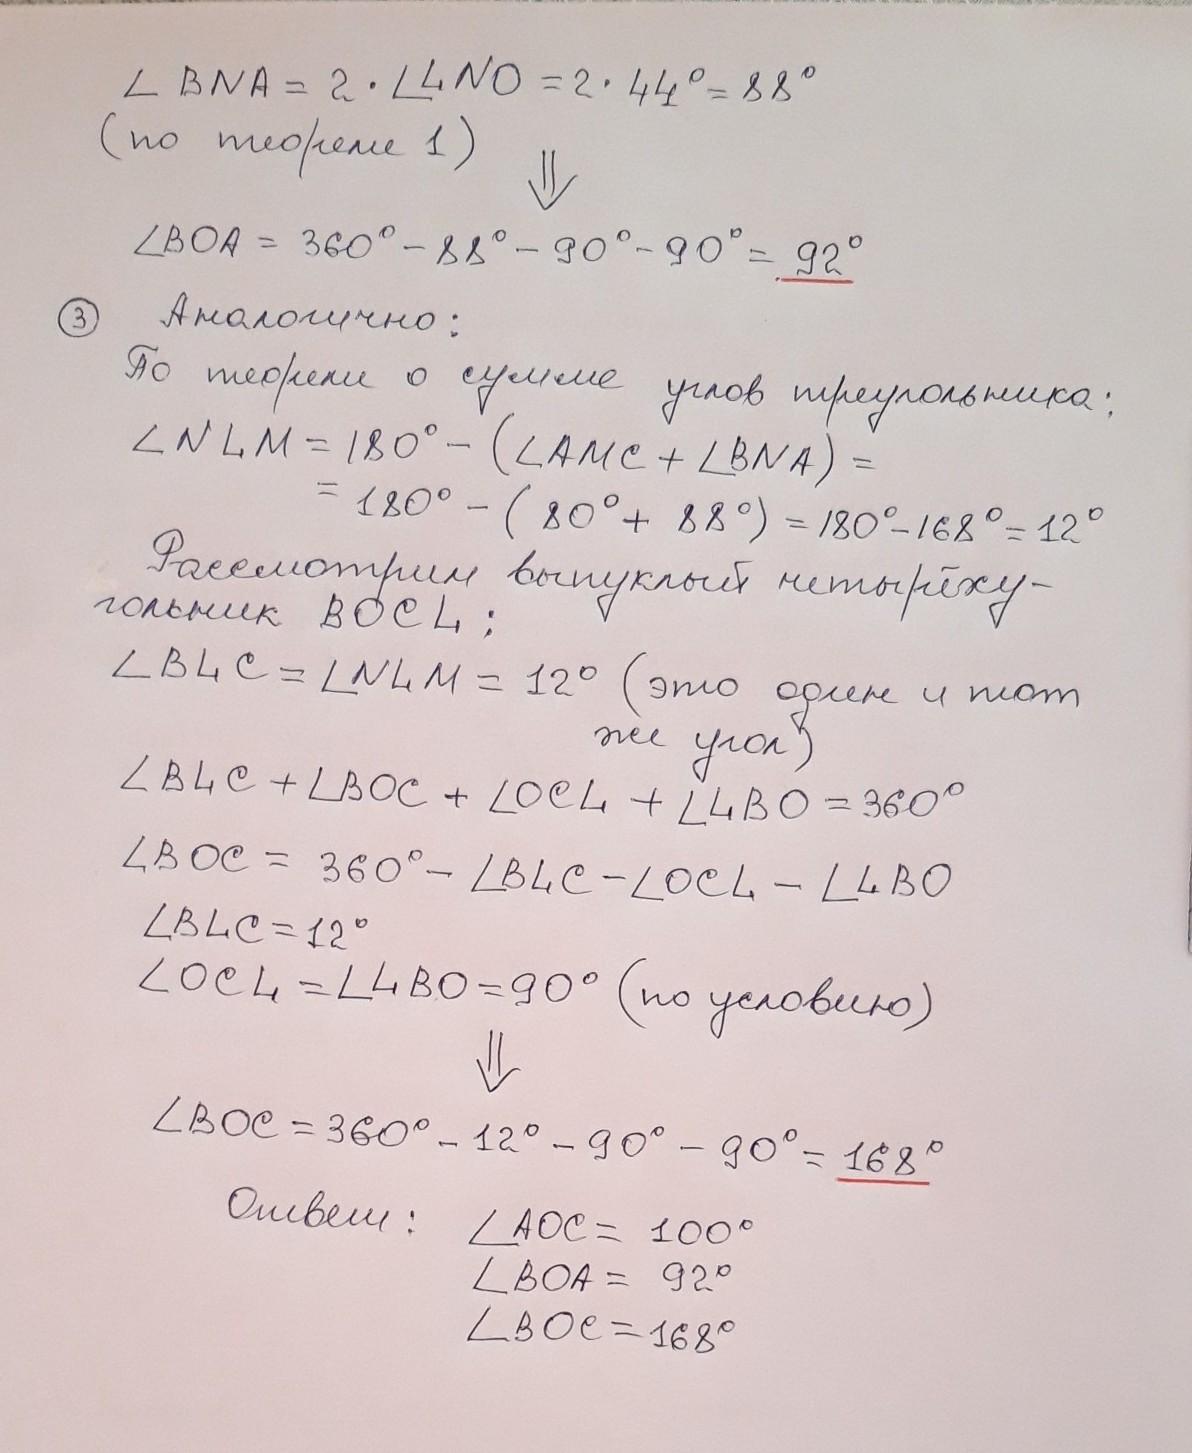 ∠BNA = 2 · ∠LNO = 2 · 44° = 88°
(по теореме 1)
⇓
∠BOA = 360° - 88° - 90° - 90° = 92°
③ Аналогично:
По теореме о сумме углов треугольника:
∠NLM = 180° - (∠AMC + ∠BNA) =
= 180° - (80° + 88°) = 180° - 168° = 12°
Рассмотрим выпуклый четырёху-
гольник BOCL:
∠BLC = ∠NLM = 12° (это один и тот
же угол)
∠BLC + ∠BOC + ∠OCL + ∠LBO = 360°
∠BOC = 360° - ∠BLC - ∠OCL - ∠LBO
∠BLC = 12°
∠OCL = ∠LBO = 90° (по условию)
⇓
∠BOC = 360° - 12° - 90° - 90° = 168°
Ответ: ∠AOC = 100°
∠BOA = 92°
∠BOC = 168°